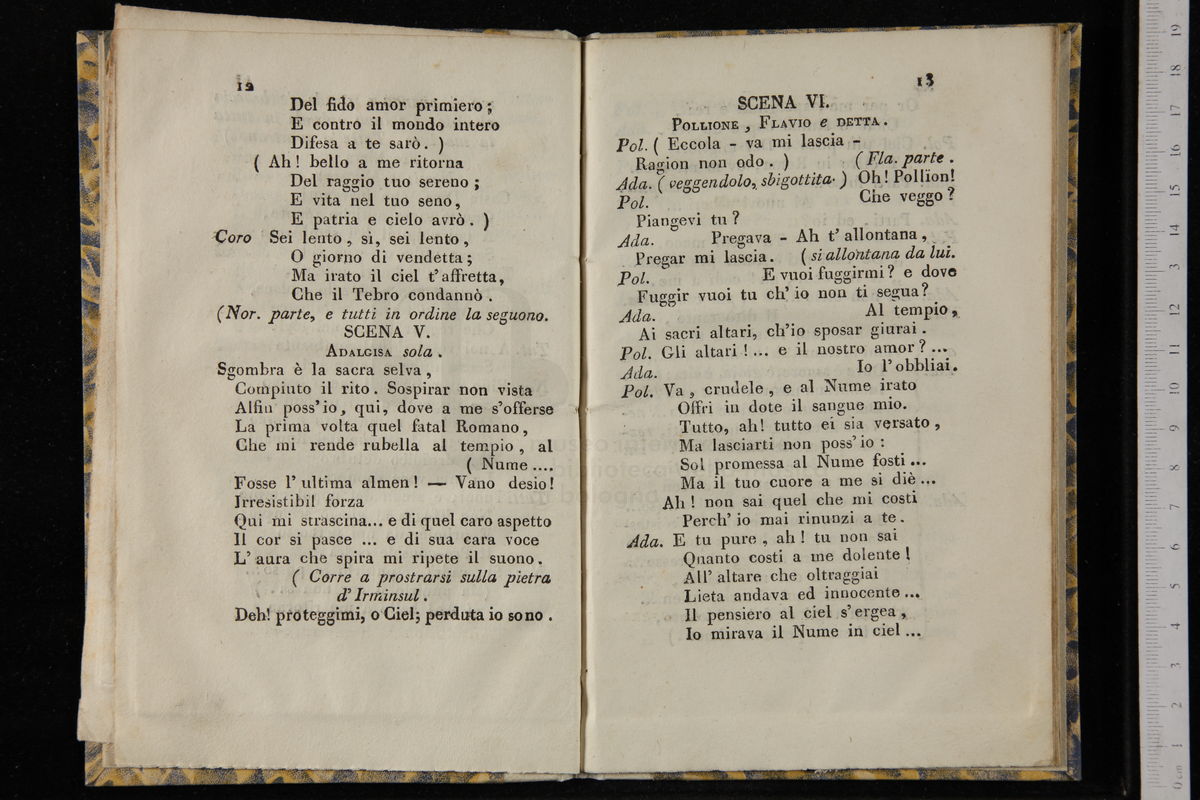 12
Del fido amor primiero ;
E contro il mondo intero
Difesa a te sarò . )
( Ah ! bello a me ritorna
Del raggio tuo sereno ;
E vita nel tuo seno ,
E patria e cielo avrò . )
Coro Sei lento , sì, sei lento ,
O giorno di vendetta ;
Ma irato il ciel t' affretta,
Che il Tebro condannò .
(Nor. parte, e tutti in ordine la seguono.
SCENA V.
ADALGISA sola .
Sgombra è la sacra selva ,
Compiuto il rito . Sospirar non vista
Alfin poss'io , qui, dove a me s'offerse
La prima volta quel fatal Romano ,
Che mi rende rubella al tempio , al
( Nume ....
Fosse l' ultima almen ! — Vano desio!
Irresistibil forza
Qui mi strascina... e di quel caro aspetto
Il cor si pasce ... e di sua cara voce
L' aura che spira mi ripete il suono .
( Corre a prostrarsi sulla pietra
d' Irminsul .
Deh! proteggimi, o Ciel; perduta io sono .
13
SCENA VI.
POLLIONE , FLAVIO e DETTA .
Pol. ( Eccola - va mi lascia -
Ragion non odo . ) (Fla. parte .
Ada. ( veggendolo, sbigottita. ) Oh! Pollion!
Pol. Che veggo ?
Piangevi tu ?
Ada. Pregava - Ah t' allontana ,
Pregar mi lascia . (si allontana da lui.
Pol. E vuoi fuggirmi ? e dove
Fuggir vuoi tu ch' io non ti segua ?
Ada. Al tempio ,
Ai sacri altari, ch'io sposar giurai .
Pol. Gli altari ! ... e il nostro amor ? ...
Ada. Io l' obbliai.
Pol. Va , crudele , e al Nume irato
Offri in dote il sangue mio.
Tutto, ah! tutto ei sia versato ,
Ma lasciarti non poss' io :
Sol promessa al Nume fosti ...
Ma il tuo cuore a me si diè ...
Ah ! non sai quel che mi costi
Perch' io mai rinunzi a te .
Ada. E tu pure , ah ! tu non sai
Quanto costi a me dolente !
All' altare che oltraggiai
Lieta andava ed innocente ...
Il pensiero al ciel s' ergea ,
Io mirava il Nume in ciel ...